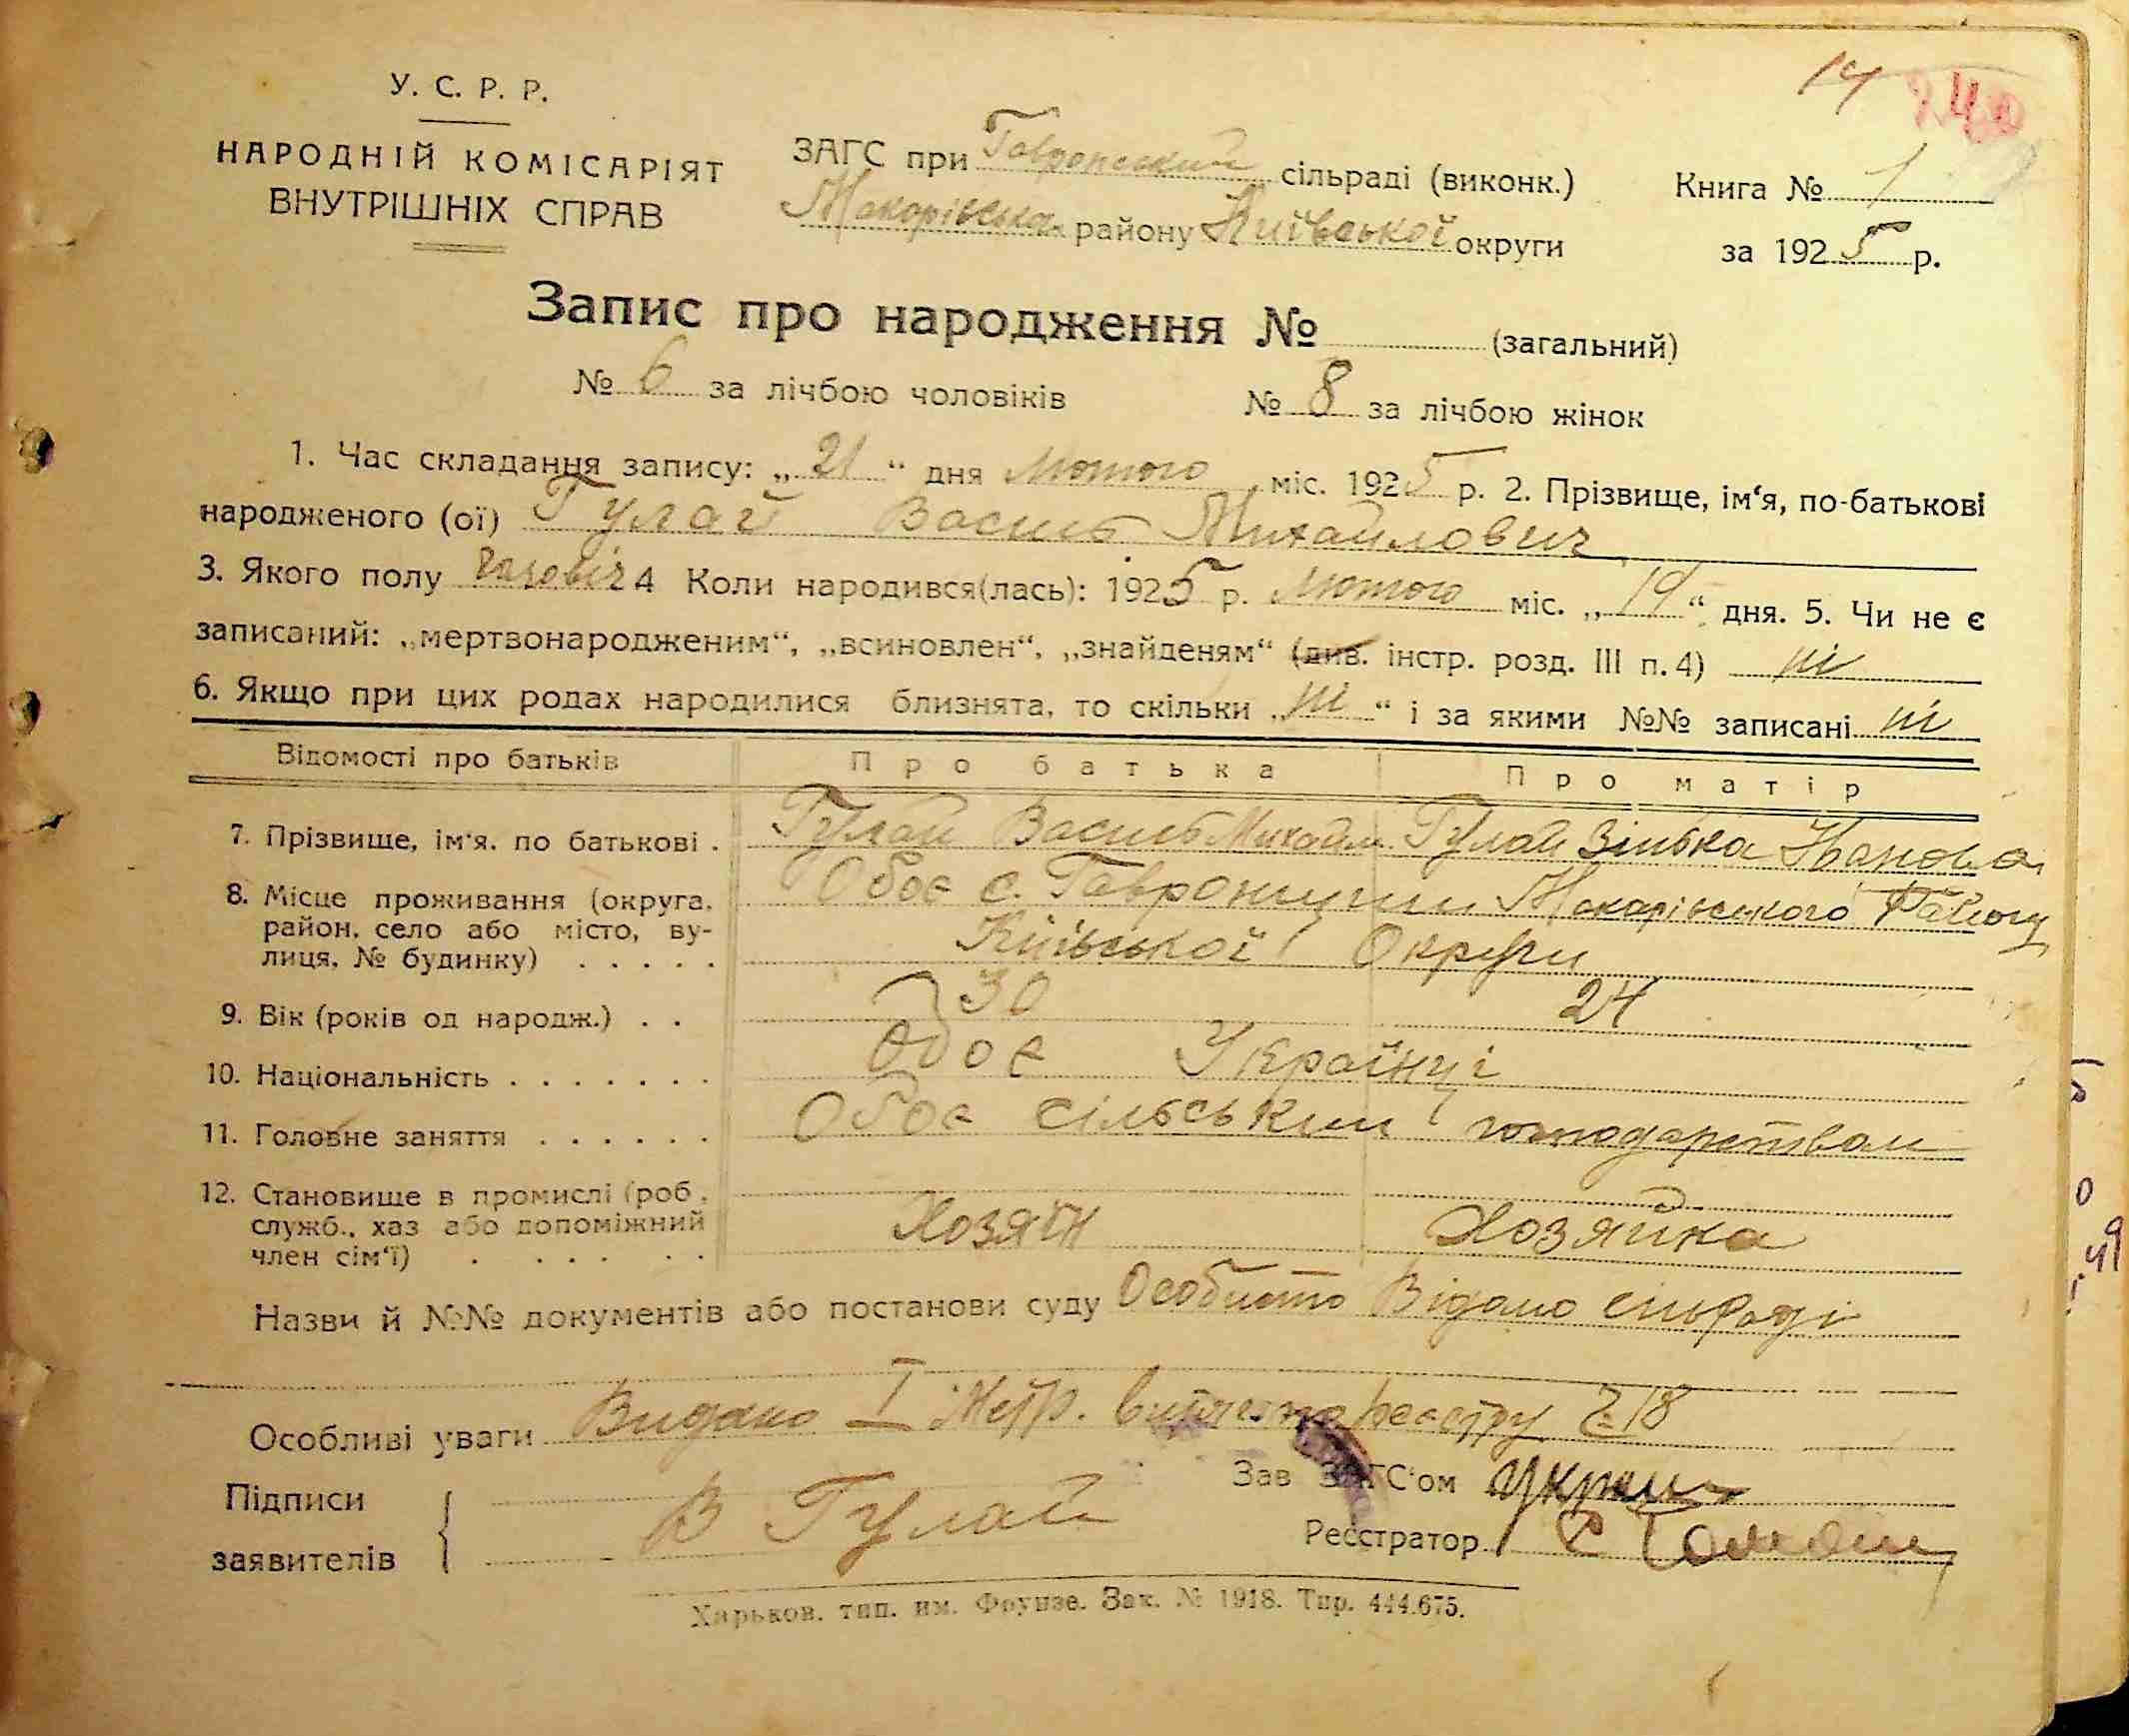 14
У. С. Р. Р.
НАРОДНІЙ КОМІСАРІЯТ
ВНУТРІШНІХ СПРАВ
ЗАГС при Гавронський сільраді (виконк.)
Макарівська району Київської округи
Книга № 1
за 1925 р.
Запис про народження № (загальний)
№ 6 за лічбою чоловіків № 8 за лічбою жінок
1. Час складання запису: „21“ дня Лютого міс. 1925 р. 2. Прізвище, ім‘я, по-батькові
народженого (ої) Гулай Василь Михайлович
3. Якого полу 4 Коли народився(лась): 1925 р. Лютого міс. „19“ дня. 5. Чи не є
записаний: „мертвонародженим“, „всиновлен“, „знайденям“ (див. інстр. розд. III п. 4) ні
6. Якщо при цих родах народилися близнята, то скільки „ні“ і за якими №№ записані ні
Відомості про батьків Про батька Про матір
7. Прізвище, ім‘я, по батькові . Гулай Василь Михайл. Гулай Зінька Іванова
8. Місце проживання (округа, Обоє с. Гавронщини Макарівського Району
район, село або місто, ву-
лиця, № будинку) . . . . . Київської Округи
9. Вік (років од народж.) . . 30 24
10. Національність . . . . . . . Обоє Українці
11. Головне заняття . . . . . . Обоє сільським господарством
12. Становище в промислі (роб.,
служб., хаз або допоміжний Хозяїн Хозяйка
член сім‘ї) . . . . . .
Назви й №№ документів або постанови суду Особисто Відомо сільраді
Особливі уваги Видано I Метр. реєстру 18
Підписи
заявителів
В Гулай
Зав ЗАГС‘ом
Реєстратор
Харьков. тип. им. Фрунзе. Зак. № 1918. Тир. 444.675.